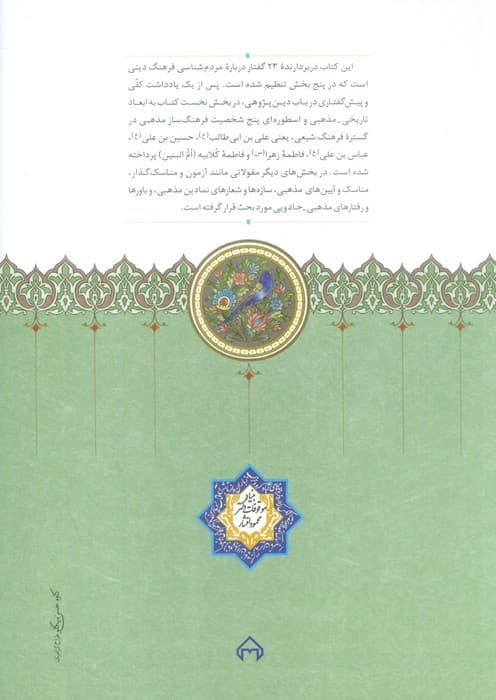 این کتاب دربردارندهٔ ۲۳ گفتار دربارهٔ مردم‌شناسی فرهنگ دینی
است که در پنج بخش تنظیم شده است. پس از یک یادداشت کلّی
و پیش‌گفتاری در باب دین‌پژوهی، در بخش نخست کتاب به ابعاد
تاریخی ـ مذهبی و اسطوره‌ای پنج شخصیت فرهنگ‌ساز مذهبی در
گسترهٔ فرهنگ شیعی، یعنی علی بن ابی‌طالب(ع)، حسین بن علی(ع)،
عباس بن علی(ع)، فاطمهٔ زهرا(س) و فاطمهٔ کلابیه (اُمّ البنین) پرداخته
شده است. در بخش‌های دیگر مقولاتی مانند آزمون و مناسک‌گذار،
مناسک و آیین‌های مذهبی، سازه‌ها و شعارهای نمادین مذهبی، و باورها
و رفتارهای مذهبی ـ جادویی مورد بحث قرار گرفته است.
بنیاد
موقوفات دکتر
محمود افشار